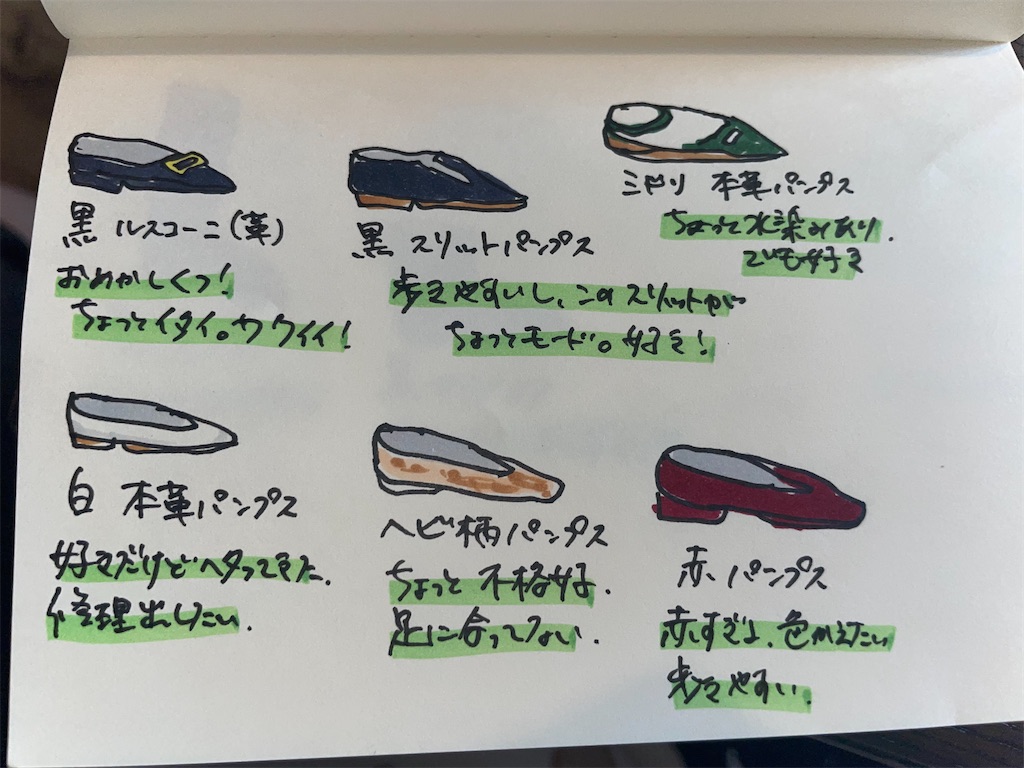 黒 ルスコーニ(革)
おめかしくつ!
ちょっとイタイ。カワイイ!
黒 スリットパンプス
歩きやすいし、このスリットが
ちょっとモード。好き!
ミドリ 本革パンプス
ちょっと水染みあり.
でも好き
白 本革パンプス
好きだけどヘタってきた.
修理出したい.
ヘビ柄パンプス
ちょっと不格好.
足に合ってない.
赤 パンプス
赤すぎる、色かえたい
歩きやすい.